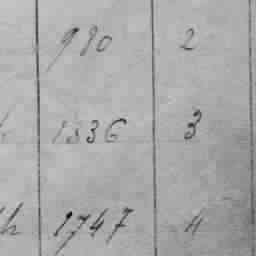 980 2
1336 3
th 1747 4